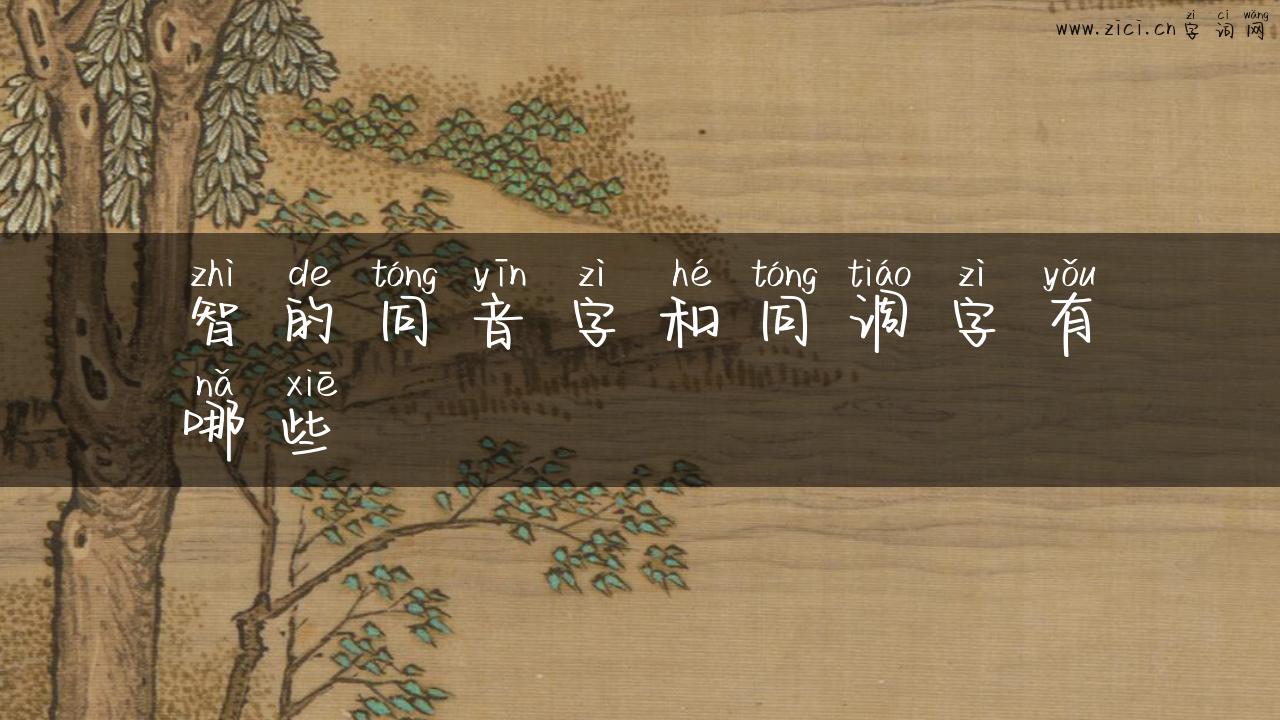 zì cí wǎng
www.zici.cn 字词网
zhì de tóng yīn zì hé tóng tiáo zì yǒu
智的同音字和同调字有
nǎ xiē
哪些